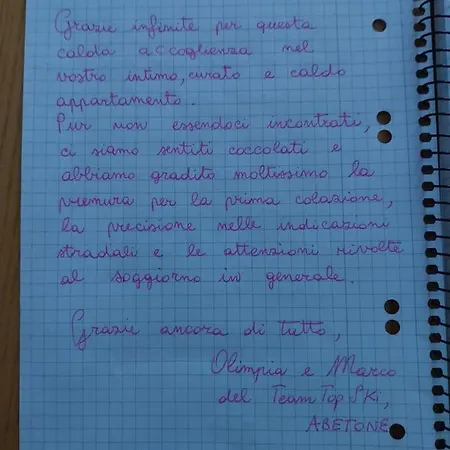 Grazie infinite per questa
calda accoglienza nel
vostro intimo, curato e caldo
appartamento.
Pur non essendoci incontrati,
ci siamo sentiti coccolati e
abbiamo gradito moltissimo la
premura per la prima colazione,
la precisione nelle indicazioni
stradali e le attenzioni rivolte
al soggiorno in generale.
Grazie ancora di tutto,
Olimpia e Marco
del Team Top Ski,
ABETONE